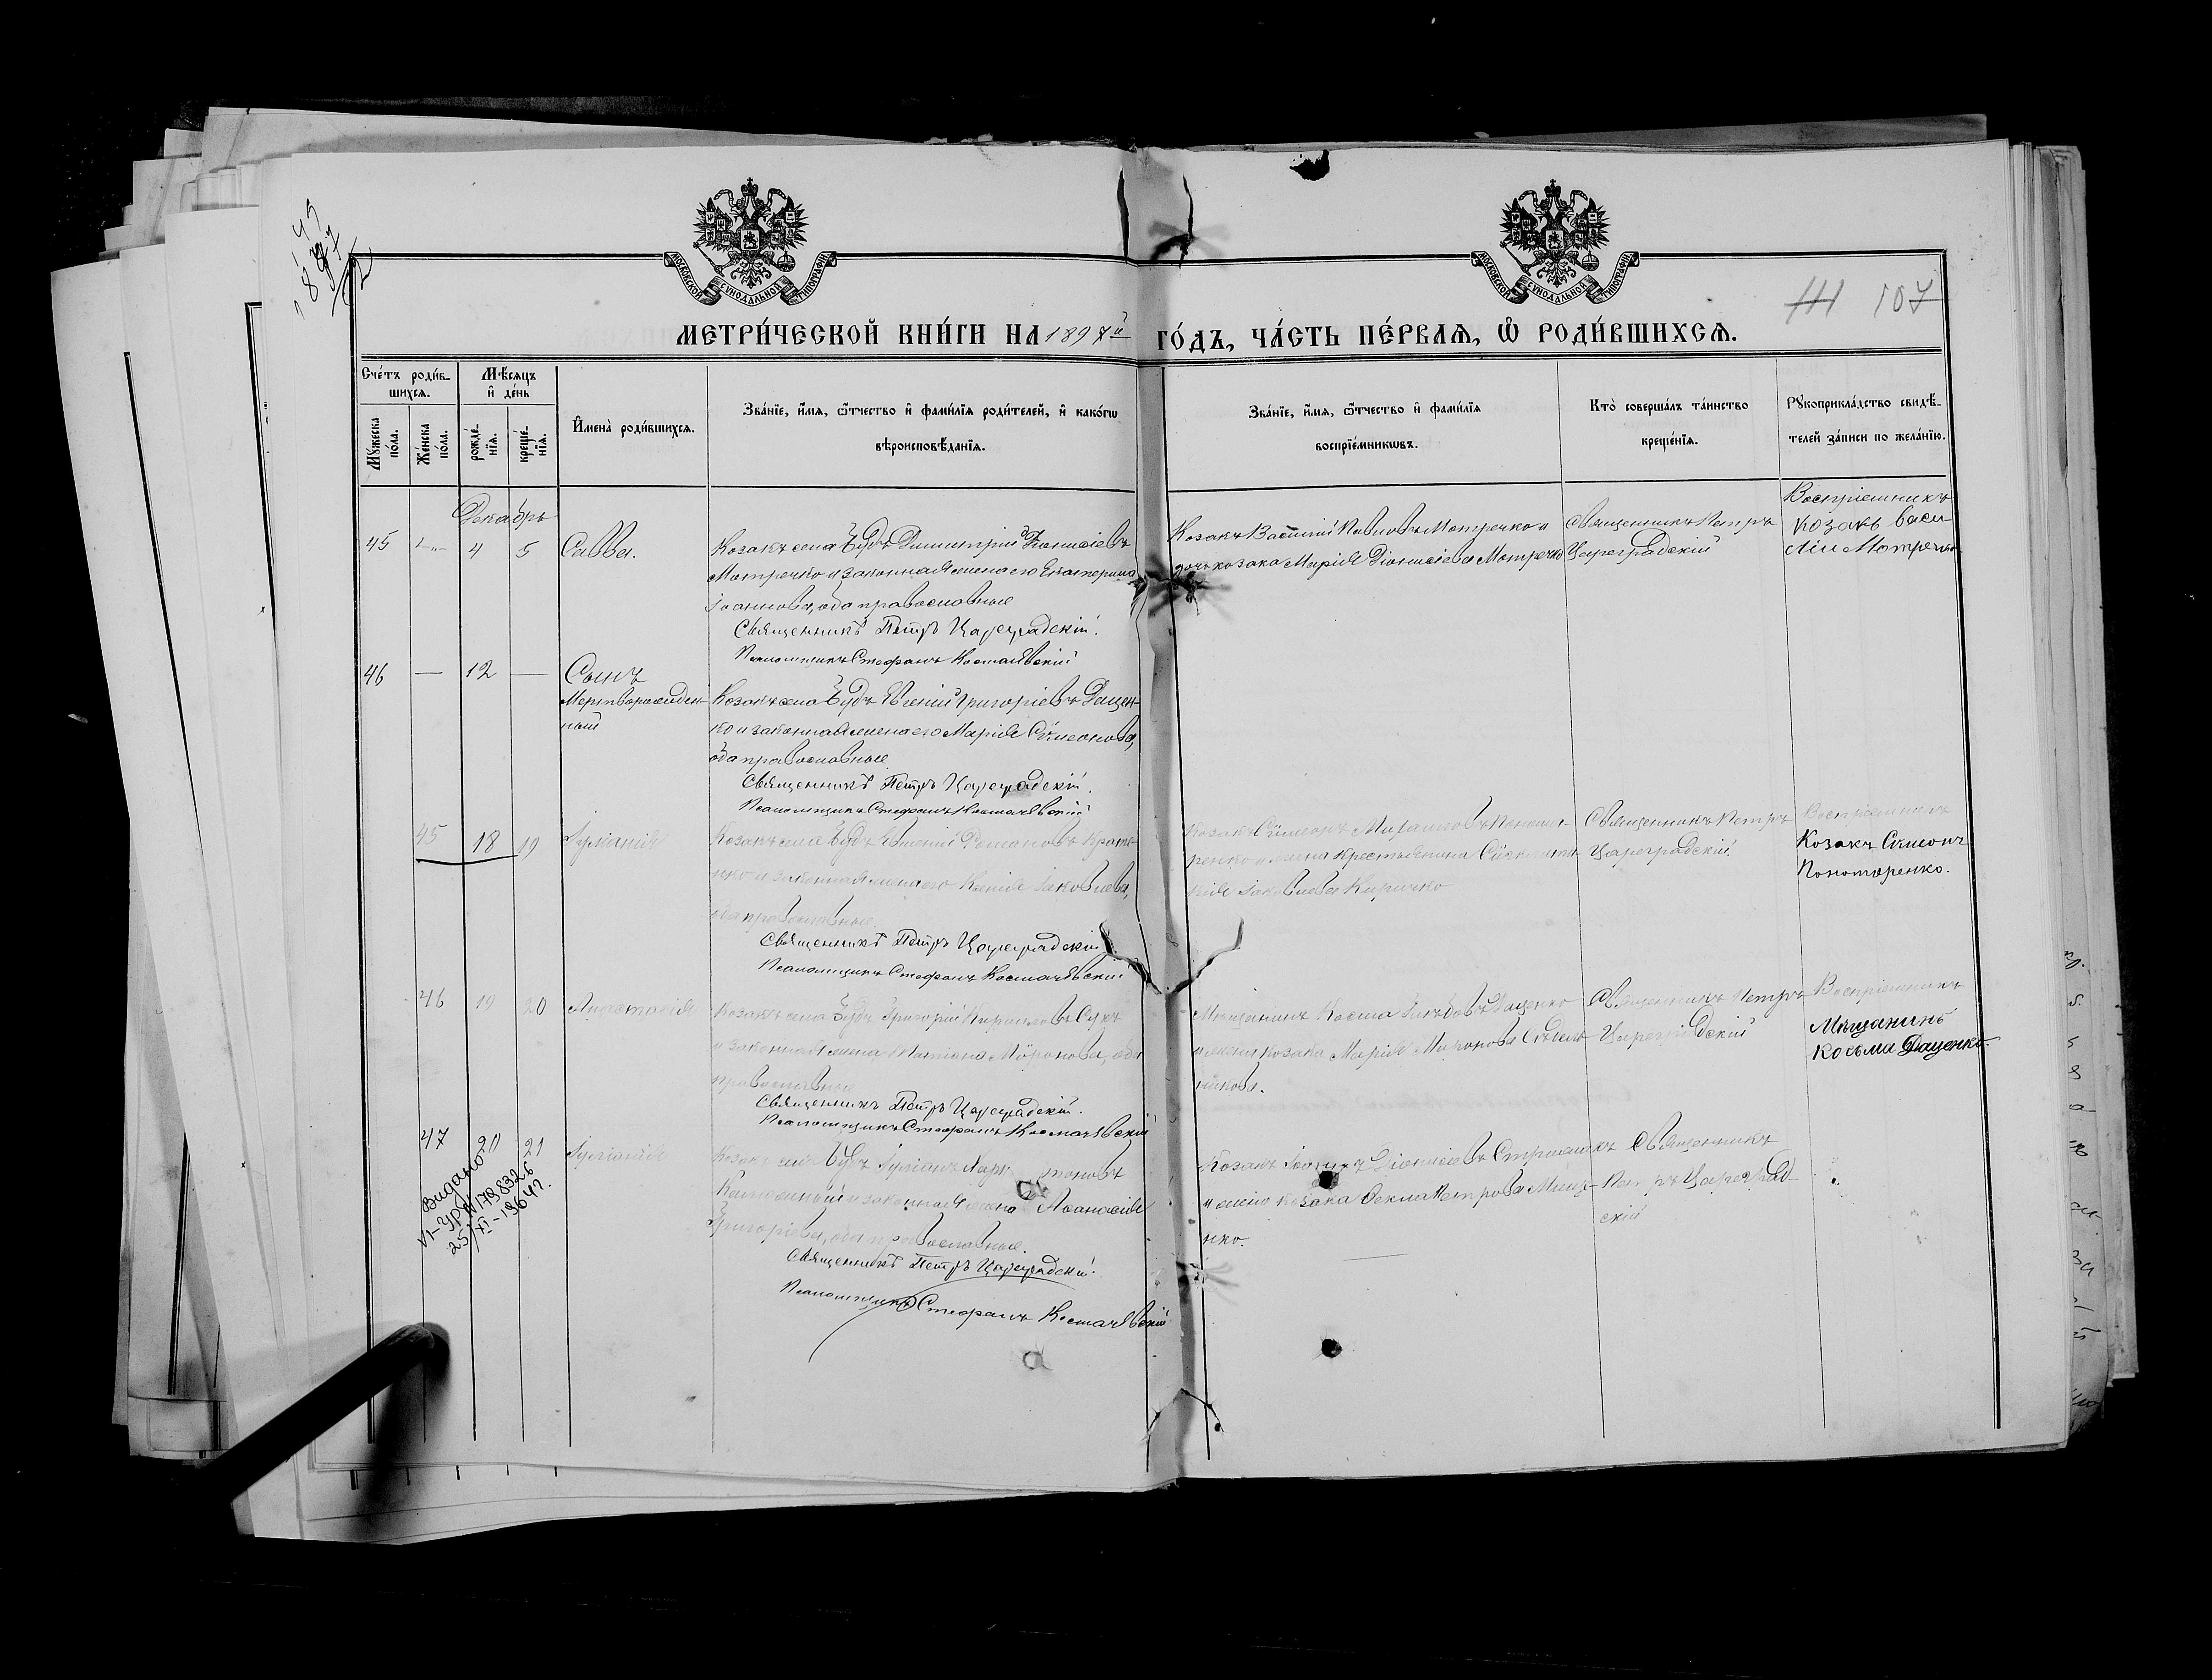 1897
МОСКОВСКОЙ СѴНОДАЛЬНОЙ ТИПОГРАФІИ
МОСКОВСКОЙ СѴНОДАЛЬНОЙ ТИПОГРАФІИ
107
МЕТРИ́ЧЕСКОЙ КНИ́ГИ НА 1897й ГО́ДЪ, ЧА́СТЬ ПЕ́РВАѦ, Ѽ РОДИ́ВШИХСѦ.
Сче́тъ роди́в-
шихсѧ.
Мѣ́сѧцъ
и҆ де́нь
Мꙋ́жеска
по́ла.
Же́нска
по́ла.
рожде́-
нїѧ.
креще́-
нїѧ.
И҆мена̀ роди́вшихсѧ.
Зва́нїе, и҆́мѧ, ѻ҆́тчество и҆ фами́лїѧ роди́телей, и҆ како́гѡ
вѣроисповѣ́данїѧ.
Зва́нїе, и҆́мѧ, ѻ҆́тчество и҆ фами́лїѧ
воспрїе́мникѡвъ.
Кто̀ соверша́лъ та́инство
креще́нїѧ.
Рꙋкоприкла́дство свидѣ́-
телей за́писи по жела́нїю.
Декабрь
45 4 5 Савва.
Козакъ села Будъ Димитрій Діонисіевъ
Матречко и законная жена его Екатерина
Іоаннова, оба православные
Священникъ Петръ Цареградскій.
Псаломщикъ Стефанъ Костачевскій
Козакъ Василій Павловъ Матречко и
дочь козака Марія Діонисіева Матречко
Священникъ Петръ
Цареградскій
Воспріемникъ
козакъ Васи-
лій Матречко
46 — 12 — Сынъ
Мертворожден-
ный
Козакъ села Будъ Евгеній Григорієвъ Дацен-
ко и законная жена его Марія Сѵмеонова,
оба православные
Священникъ Петръ Цареградскій.
Псаломщикъ Стефанъ Костачевскій
45 18 19 Іуліанія
Козакъ села Будъ Романовъ
и законная жена его Ксенія Іаковлева,
оба православные
Священникъ Петръ Цареградскій.
Псаломщикъ Стефанъ Костачевскій
Козакъ Сѵмеонъ Михаиловъ Понома-
ренко и жена крестьянина
Іаковлева Киричко
Священникъ Петръ
Цареградскій.
Воспріемникъ
Козакъ Сѵмеонъ
Пономаренко.
46 19 20 Анастасія
Козакъ села Будъ Григорій Кирилловъ Сукъ
и законная жена Татіана Мѵронова, оба
православные
Священникъ Петръ Цареградскій.
Псаломщикъ Стефанъ Костачевскій
Мѣщанинъ Косма Глѣбовъ Даценко
и жена козака Марія Миронова Сѣдель-
никова.
Священникъ Петръ
Цареградскій
Воспріемникъ
Мѣщанинъ
Косьма Даценко.
47 20 21 Іуліанія
Козакъ села Будъ Іуліанъ
и законная жена Аѳанасія
Григоріева, оба православные.
Священникъ Петръ Цареградскій.
Псаломщикъ Стефанъ Костачевскій
Козакъ Іоаннъ Діонисіевъ
и жена козака Ѳекла Петрова
нко.
Священникъ
Петръ Цареград-
скій
Видано